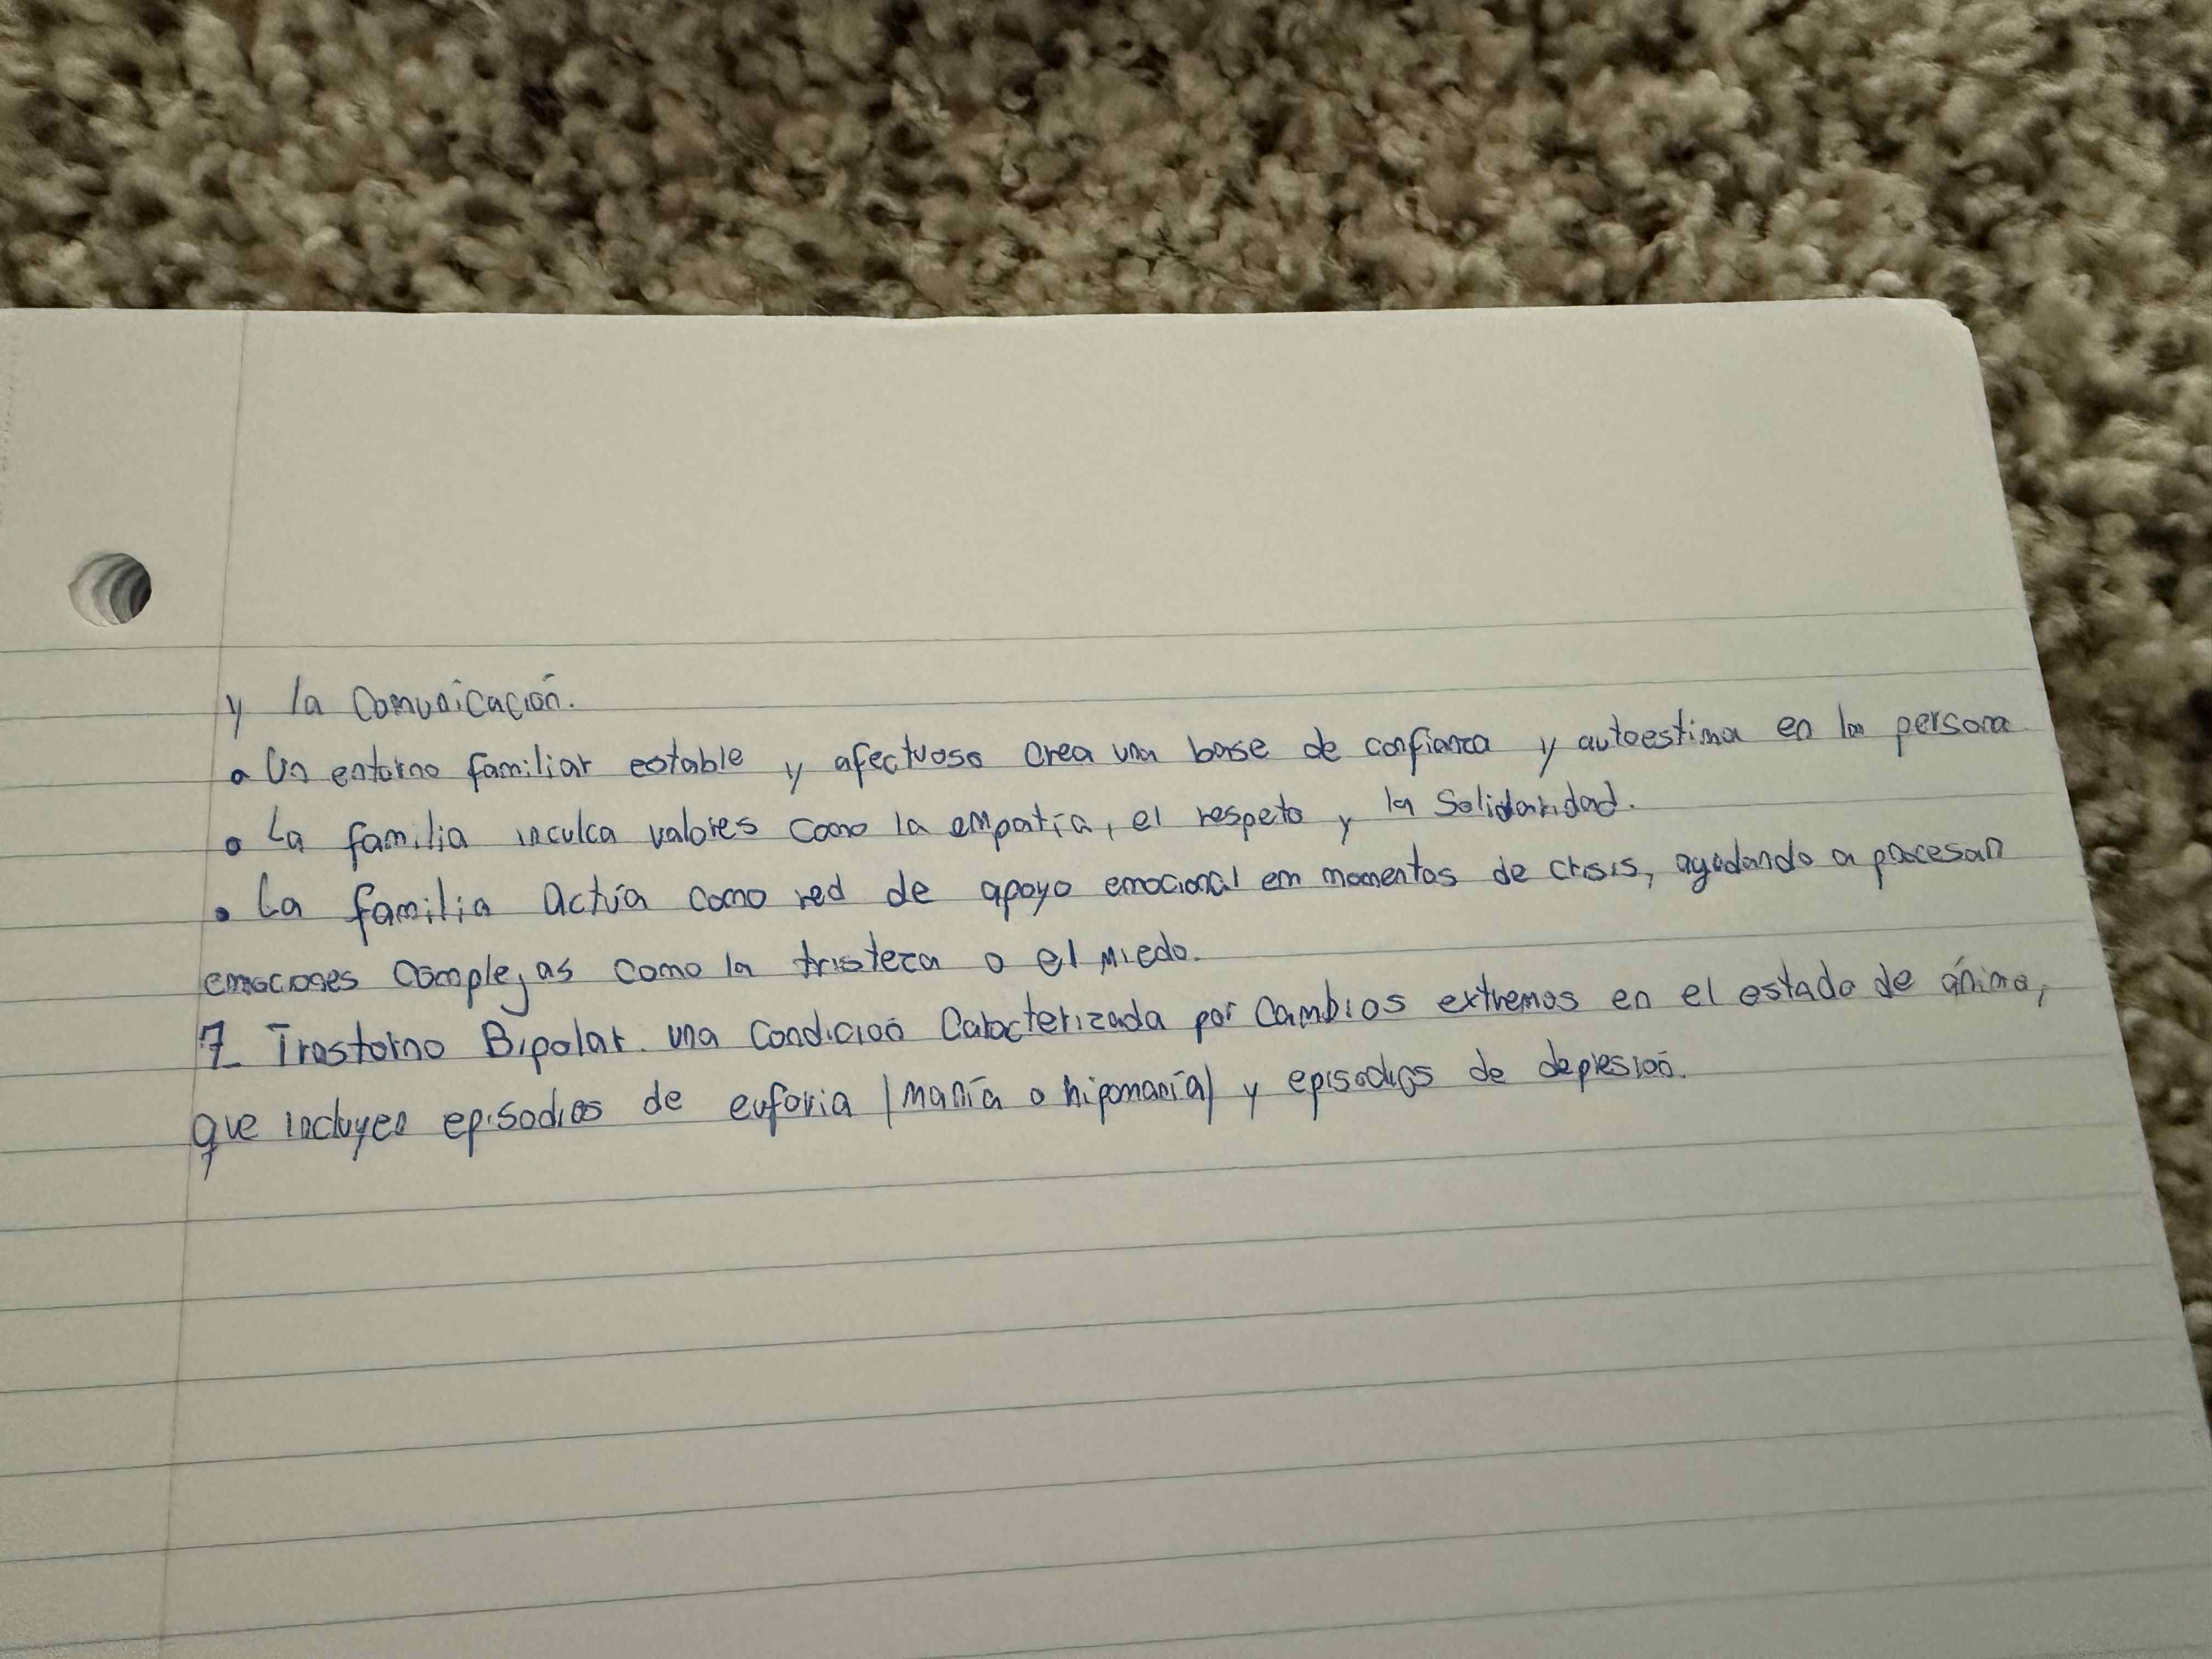 y la Comunicación.
• Un entorno familiar estable y afectuoso crea una base de confianza y autoestima en la persona
• La familia inculca valores como la empatía, el respeto y la Solidaridad.
• La familia actúa como red de apoyo emocional em momentos de crisis, ayudando a procesan
emociones complejas como la tristeza o el miedo.
7_ Trastorno Bipolar. una Condición Caracterizada por cambios extremos en el estado de ánimo,
que incluyen episodios de euforia (manía o hipomanía) y episodios de depresión.